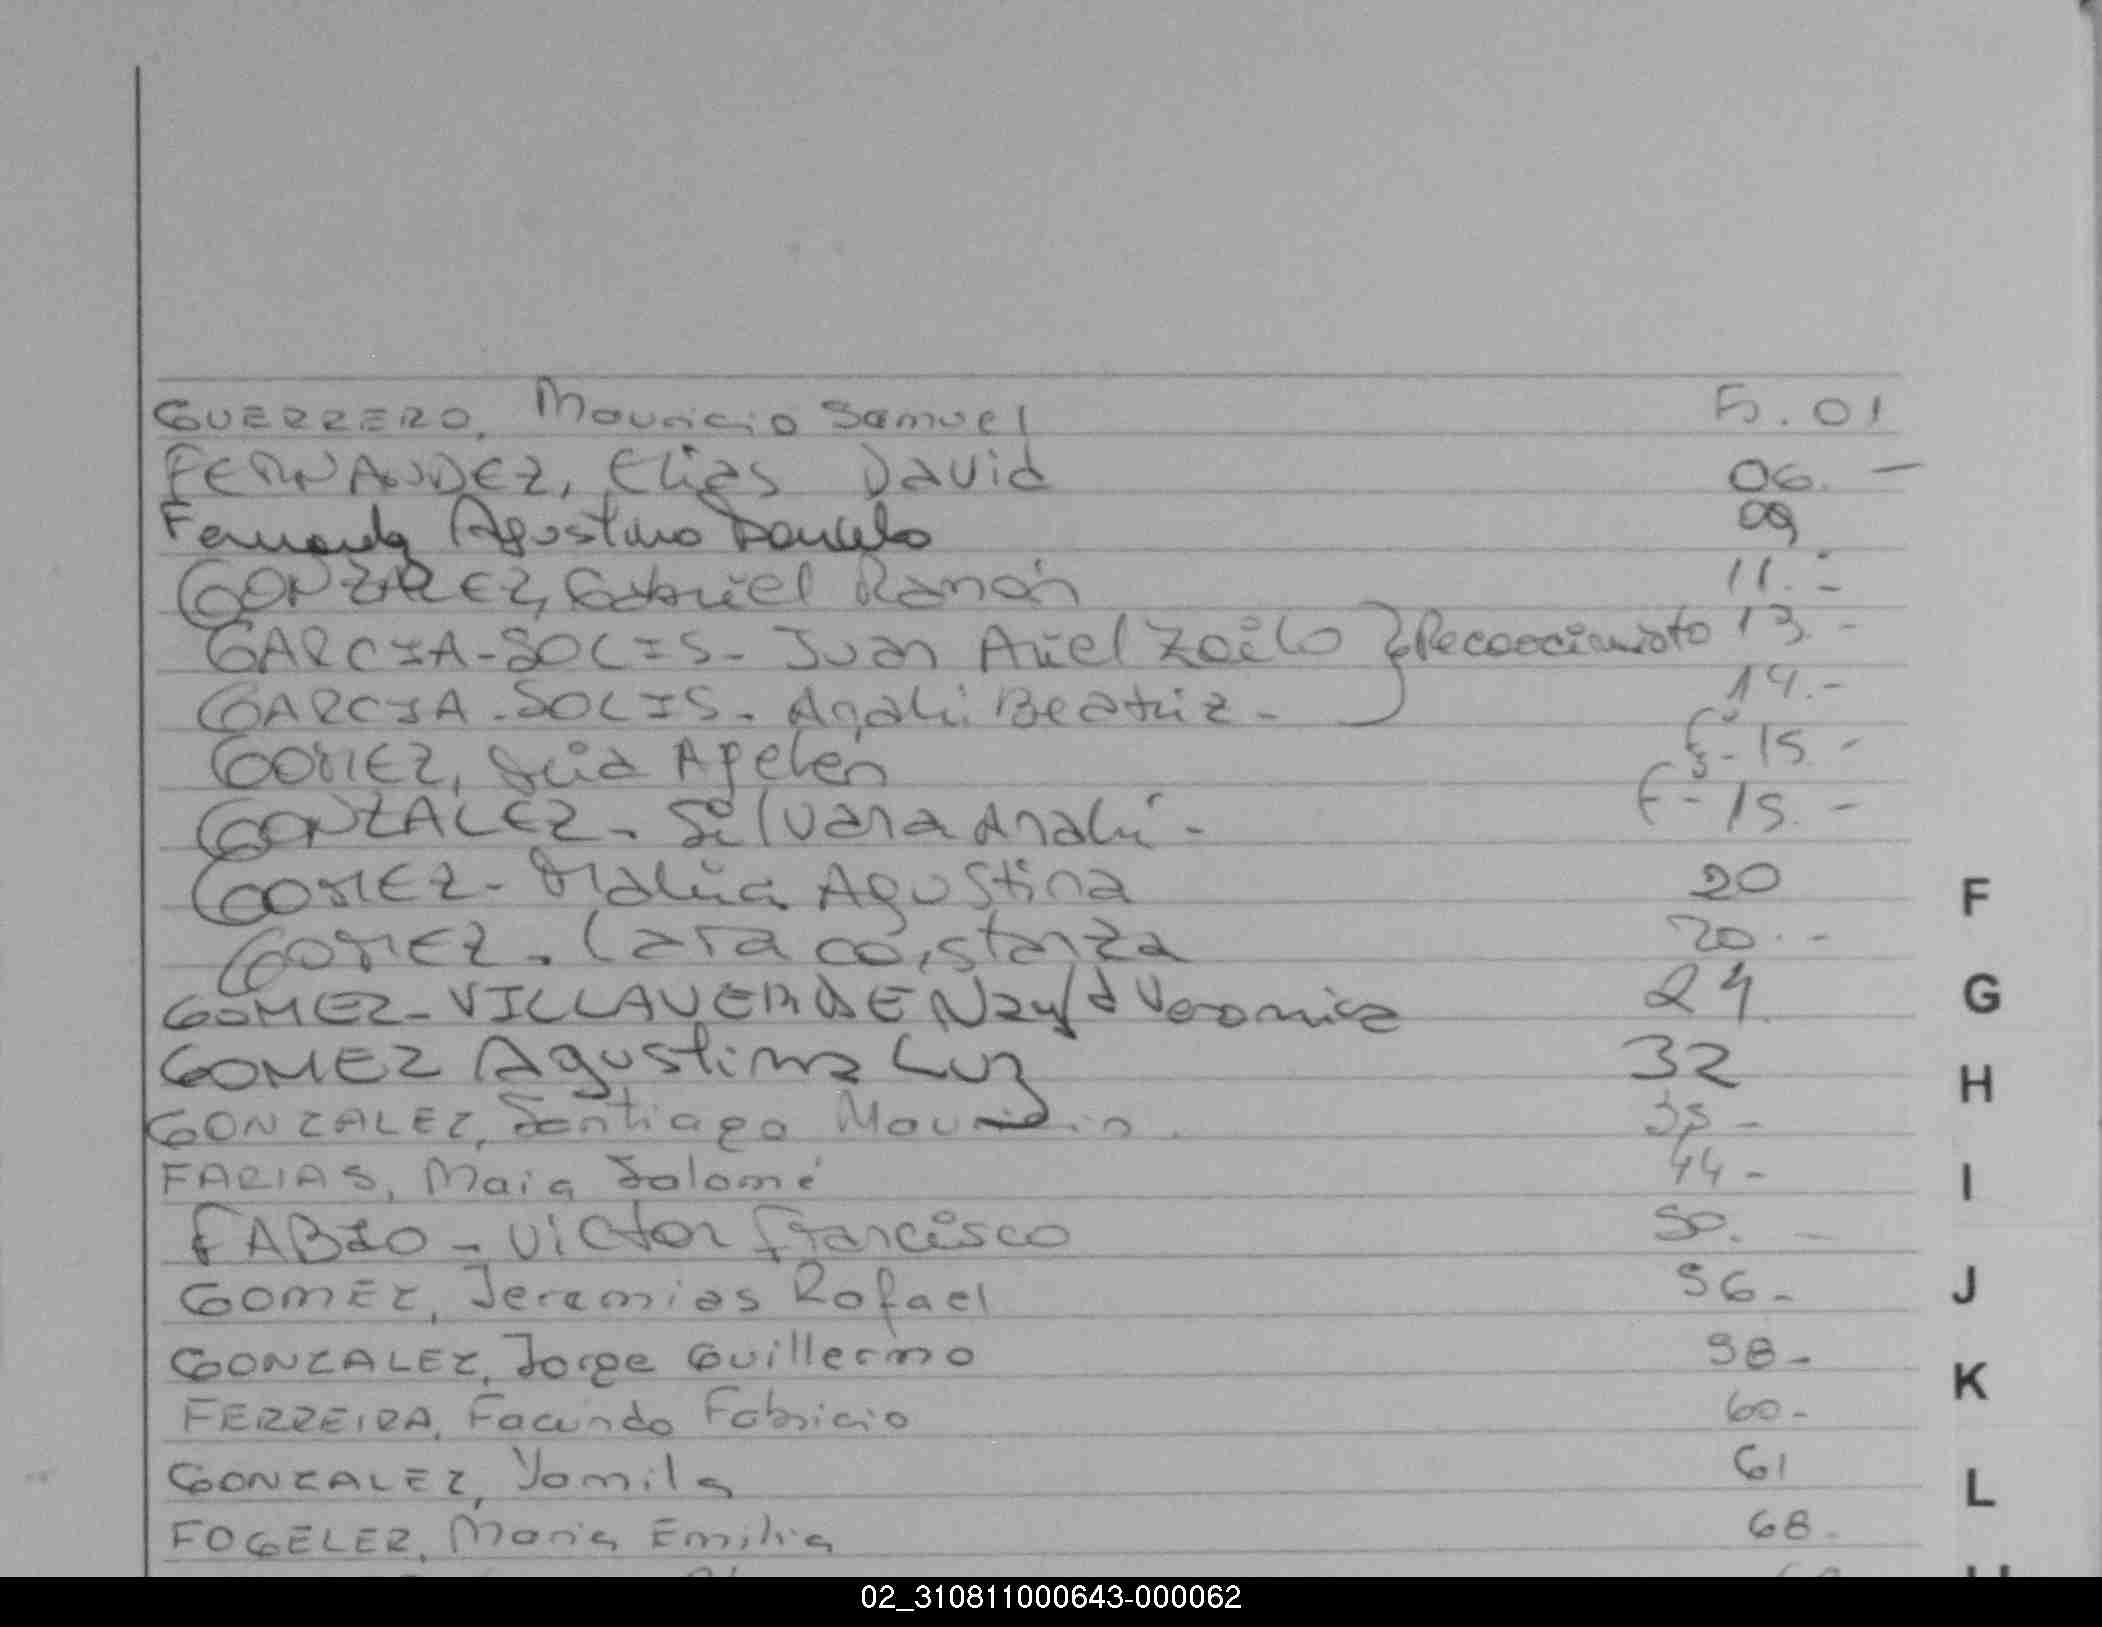 GUERRERO, Mauricio Samuel Fs. 01
FERNANDEZ, Elias David 06. -
Fernandez Agustino 09
GONZALEZ, Gabriel Ramón 11.-
GARCIA-SOLIS- Juan Ariel Zoilo } Reconocimiento 13.-
GARCIA-SOLIS- Anahi Beatriz- 14.-
GOMEZ, Ayelén Fs-15.-
GONZALEZ- Silvana Anahí- F-15.-
GOMEZ- Agustina 20
GOMEZ. Lara Constanza 20.-
GOMEZ-VILLAVERDE Veronica 24
GOMEZ Agustina Luz 32
GONZALEZ, Santiago Mauricio. 35-
FARIAS, Maia Salomé 44-
FABIO- Victor Francisco 50. -
GOMEZ, Jeremias Rafael 56-
GONZALEZ, Jorge Guillermo 58-
FERREIRA, Facundo Fabricio 60-
GONZALEZ, Yamila 61
FOGELER, Maria Emilia 68.
F
G
H
I
J
K
L
02_310811000643-000062